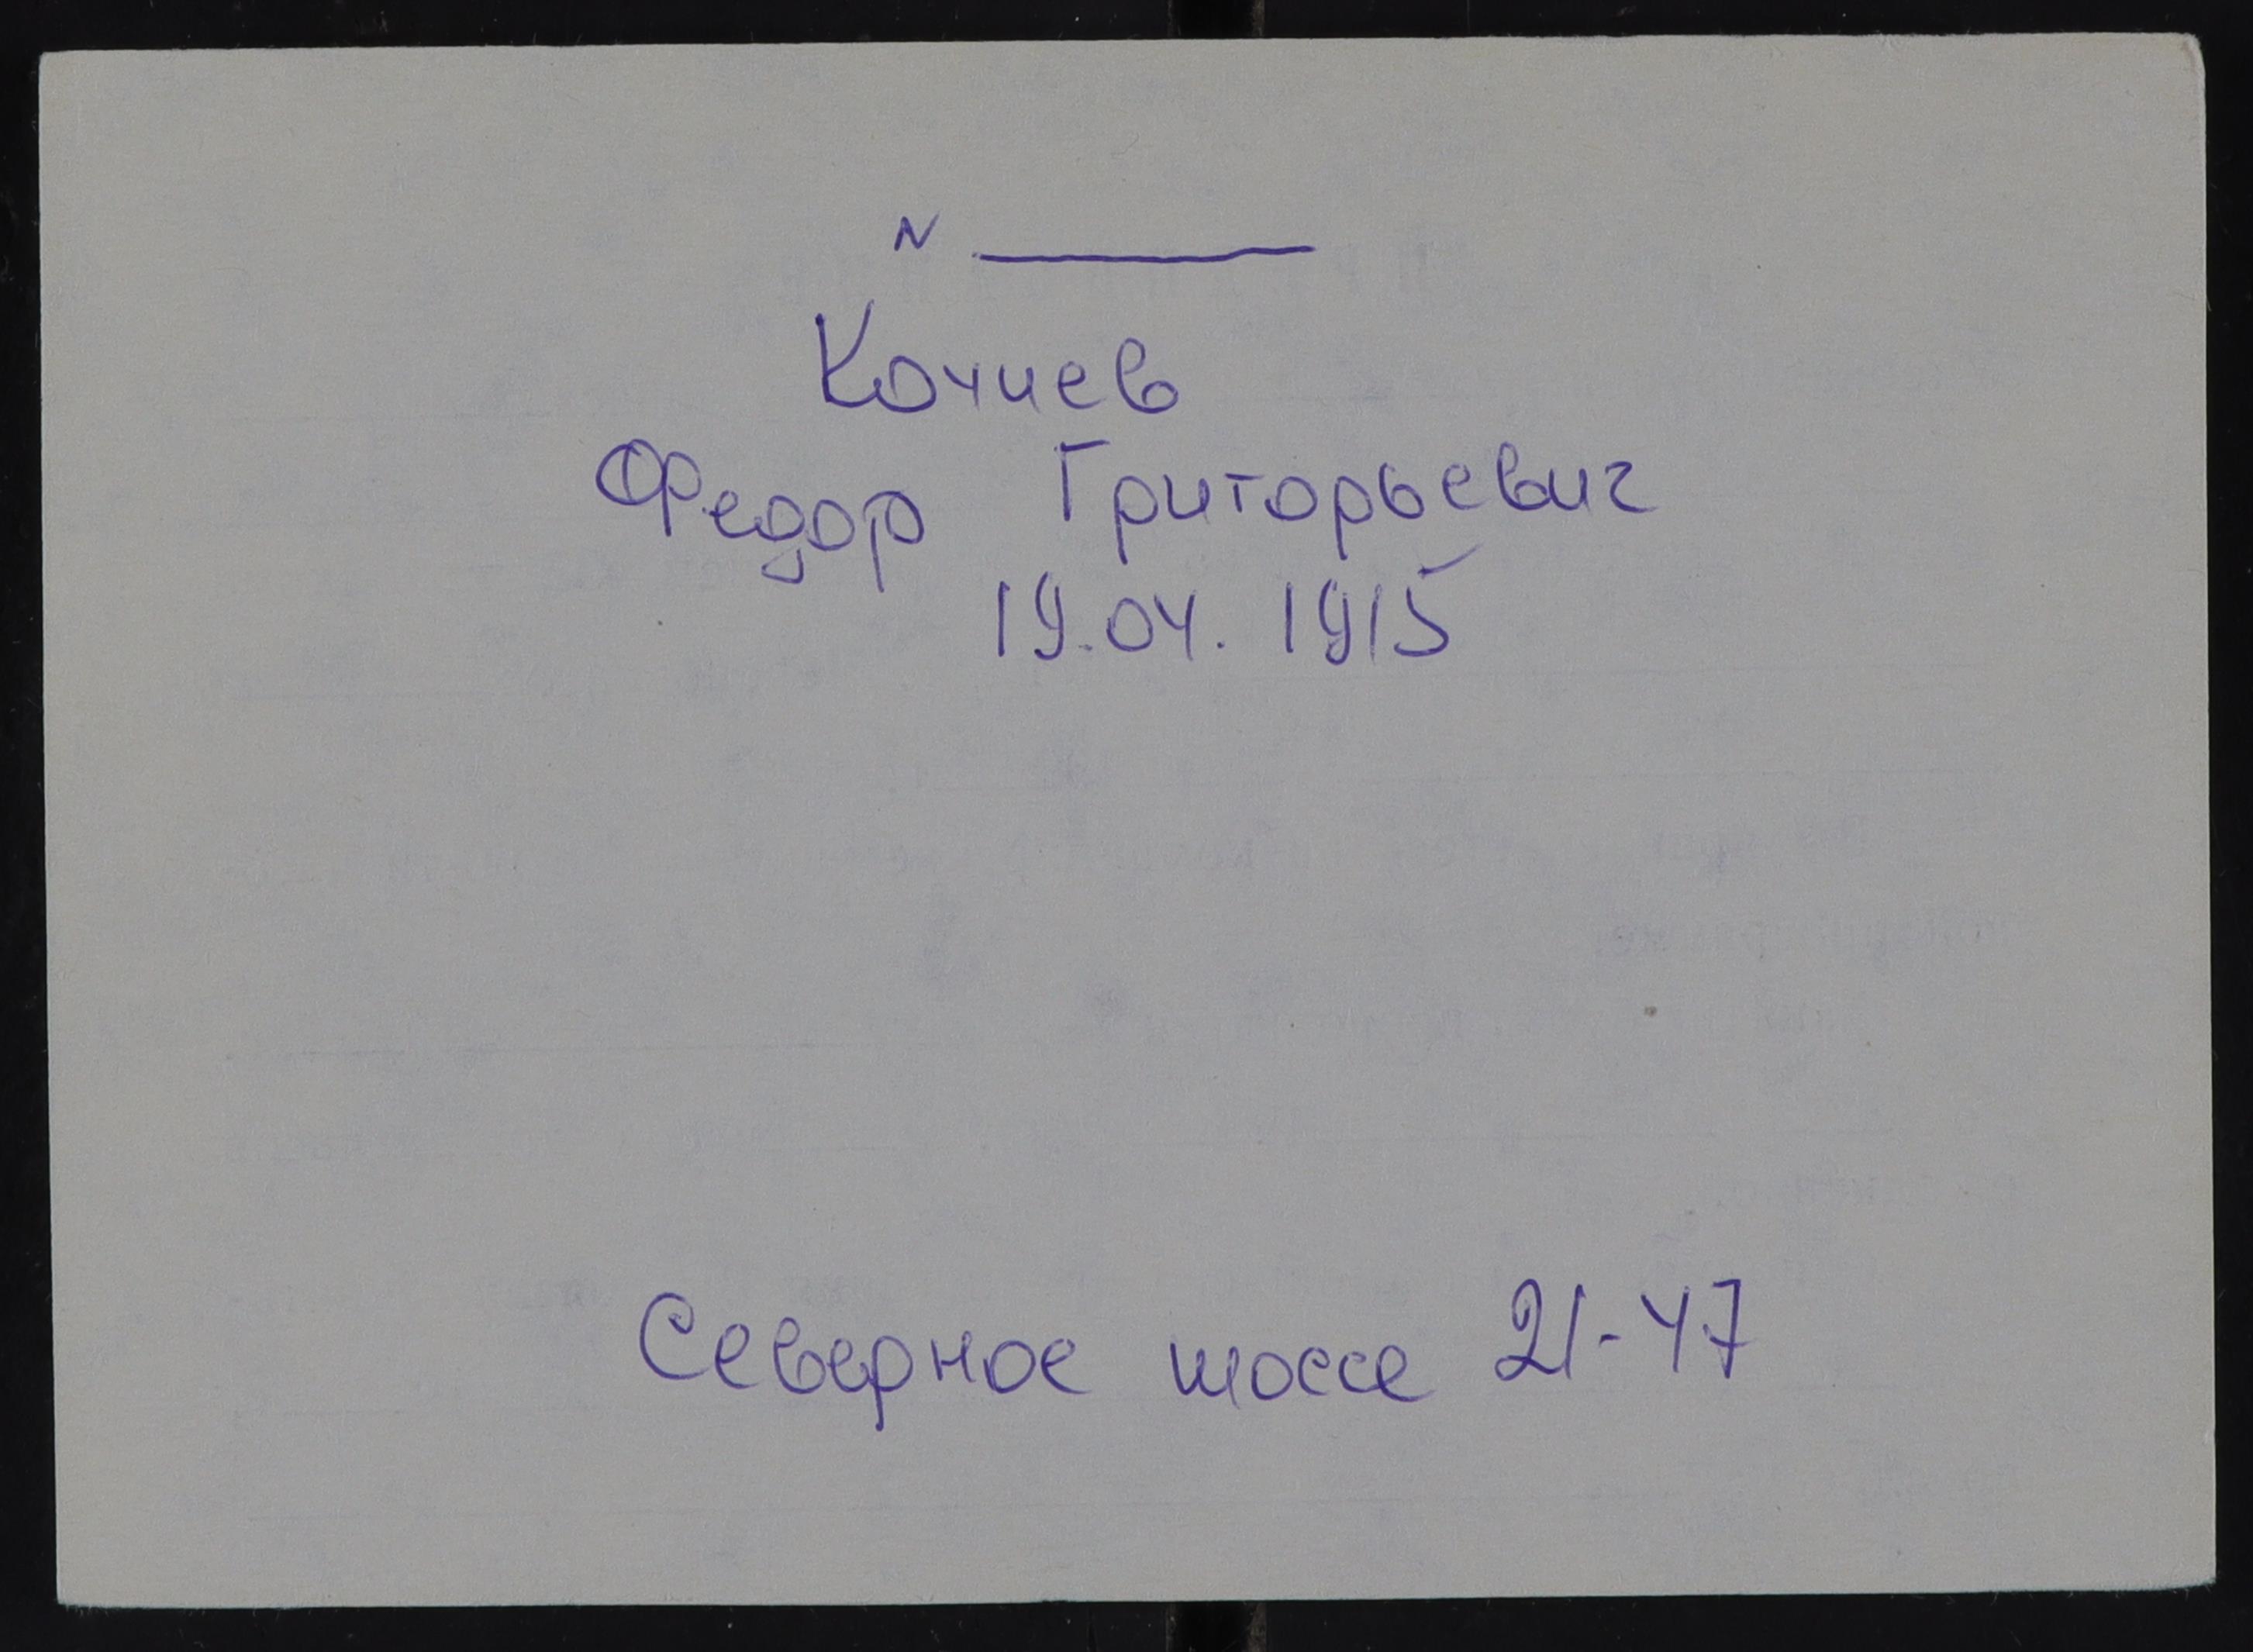 N ______
Кочиев
Федор Григорьевич
19.04.1915
Северное шоссе 21-47